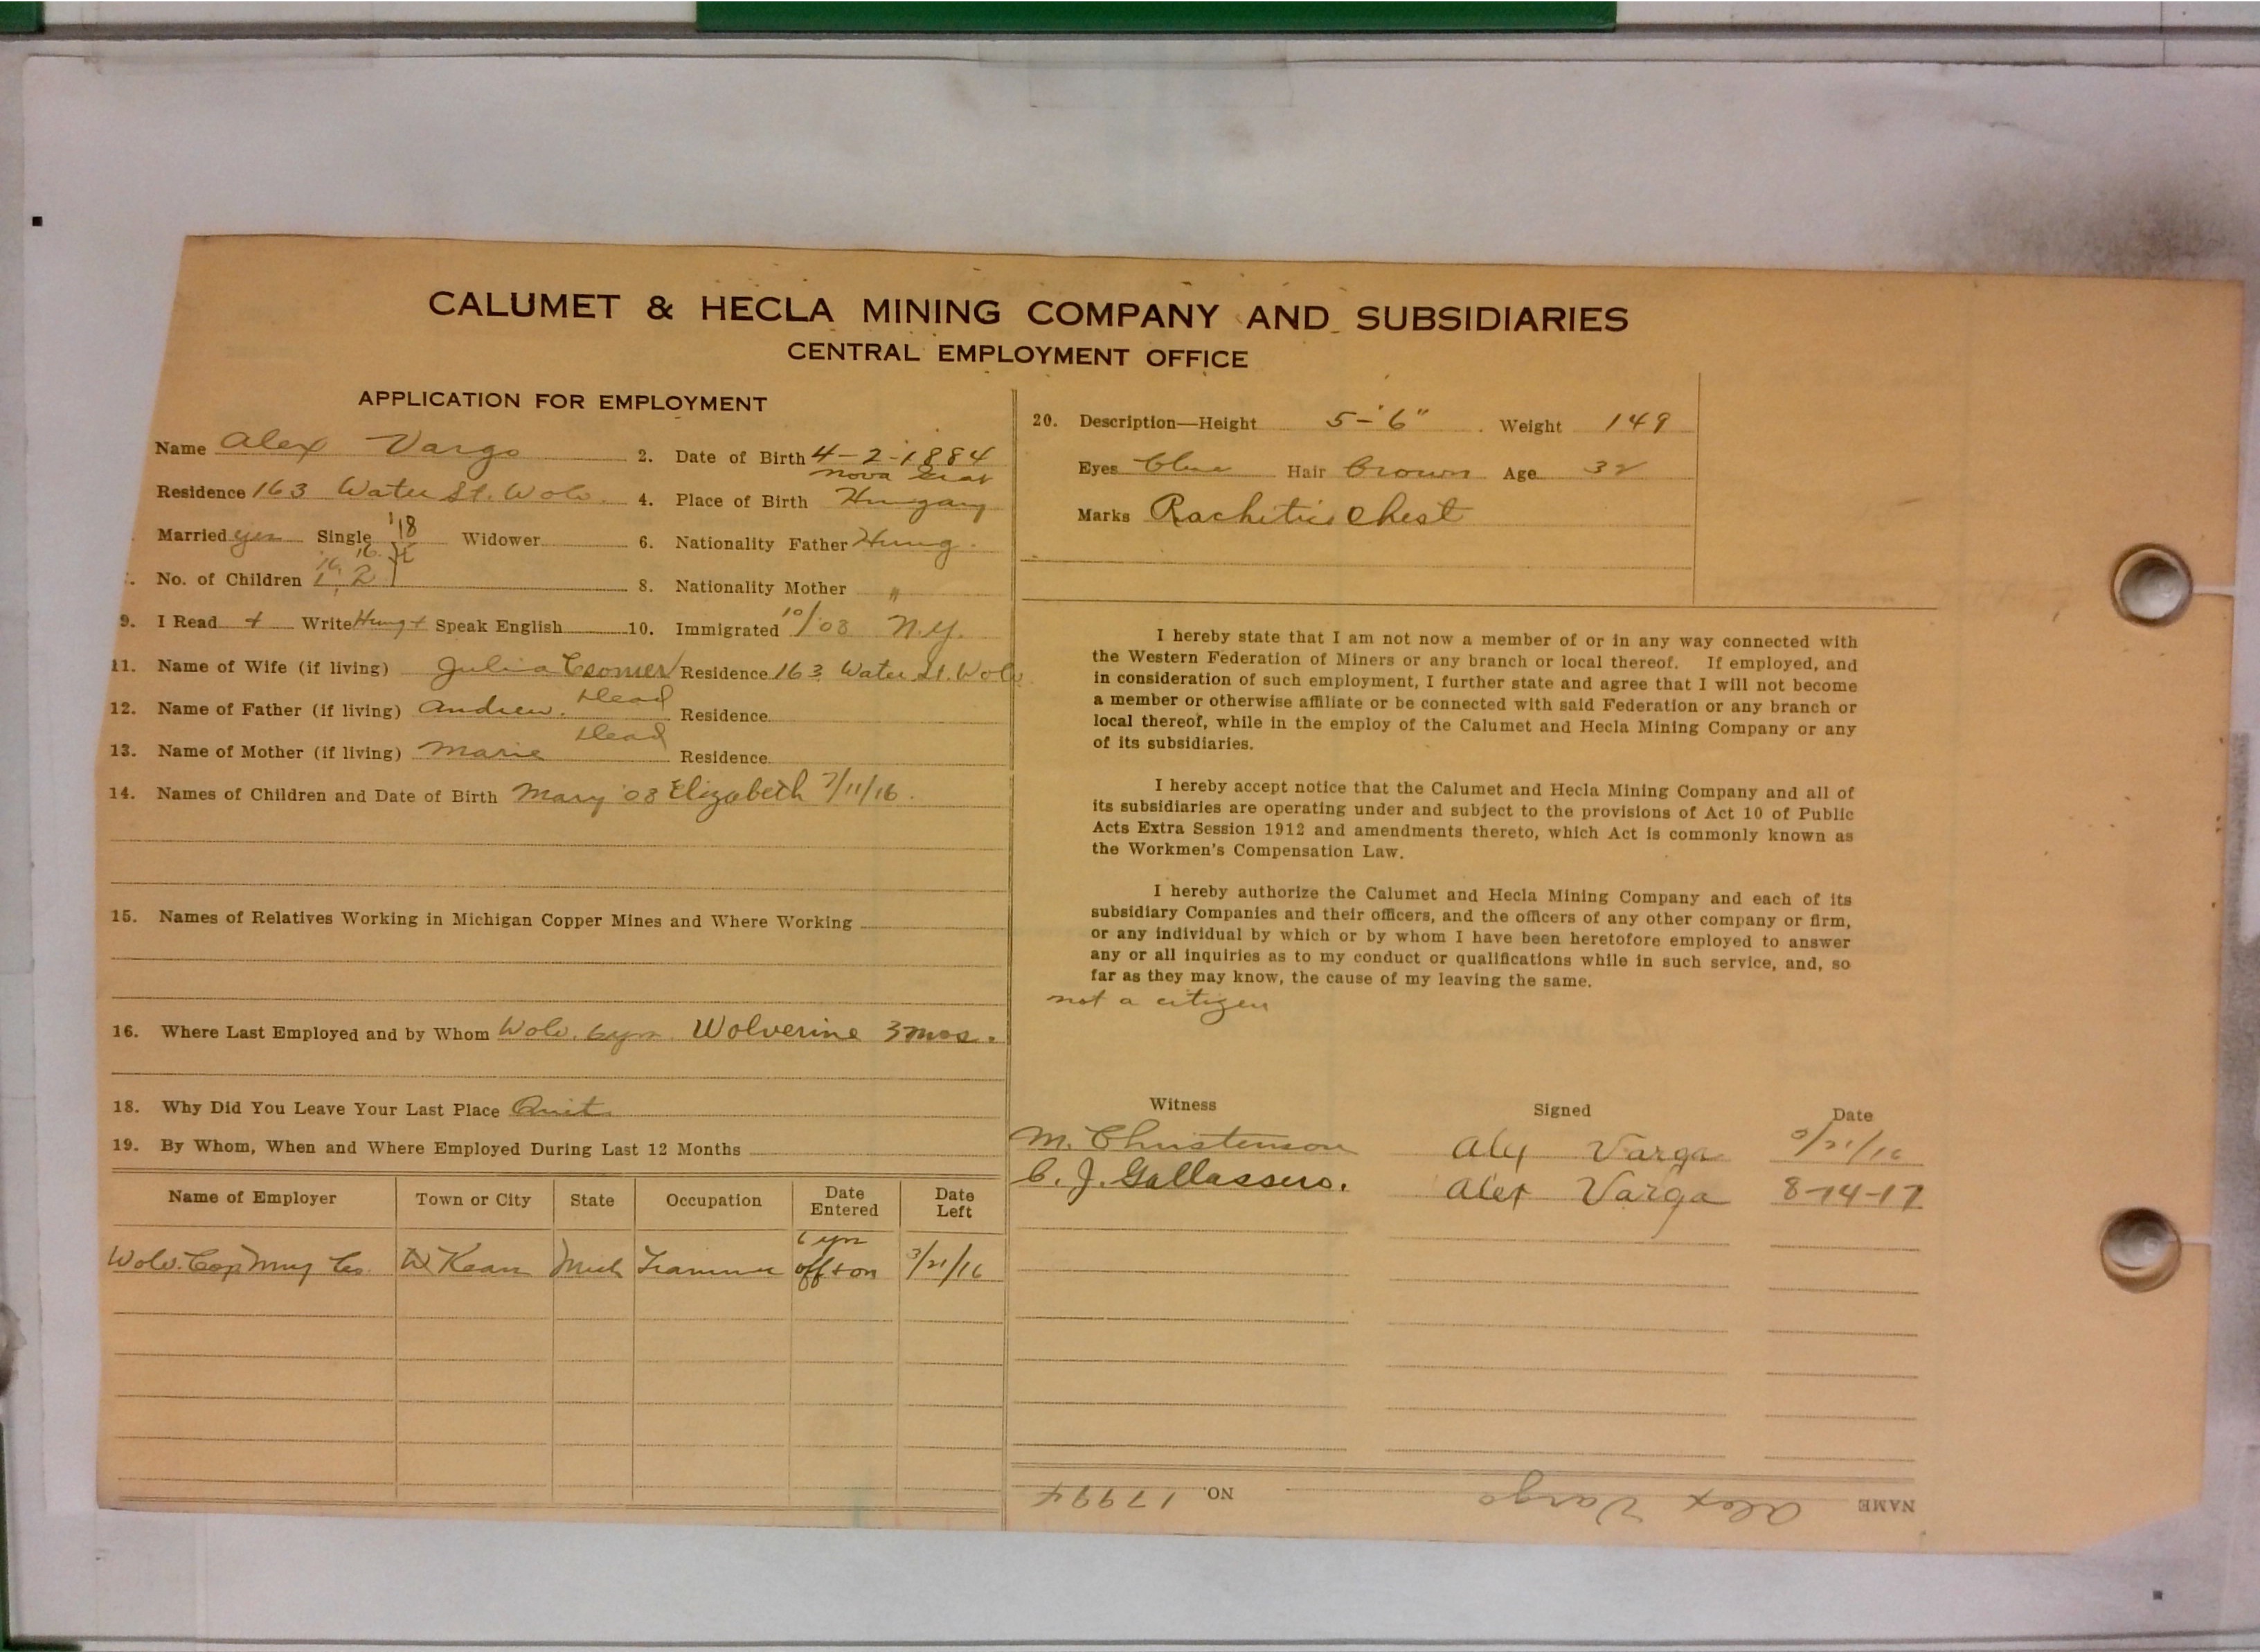 CALUMET & HECLA MINING COMPANY AND SUBSIDIARIES
CENTRAL EMPLOYMENT OFFICE
APPLICATION FOR EMPLOYMENT
Name Alex Vargo 2. Date of Birth 4-2-1884
Residence 163 Water St. Wolv. 4. Place of Birth Nova Hungary
Married yes Single '18 Widower 6. Nationality Father Hung.
No. of Children 1, 2 8. Nationality Mother "
9. I Read + Write Hung + Speak English 10. Immigrated 10/03 N.Y.
11. Name of Wife (if living) Julia Residence 163 Water St. Wolv
12. Name of Father (if living) Andrew. Dead Residence
13. Name of Mother (if living) Marie Dead Residence
14. Names of Children and Date of Birth Mary '08 Elizabeth 7/11/16.
15. Names of Relatives Working in Michigan Copper Mines and Where Working
16. Where Last Employed and by Whom Wolv. 6yrs. Wolverine 3 mos.
18. Why Did You Leave Your Last Place Quit
19. By Whom, When and Where Employed During Last 12 Months
Name of Employer Town or City State Occupation Date Entered Date Left
Wolv. Cop Mng Co. Kear Mich Trammer 6 yrs off + on 3/21/16
20. Description—Height 5-'6" Weight 149
Eyes blue Hair brown Age 32
Marks Rachitic Chest
I hereby state that I am not now a member of or in any way connected with
the Western Federation of Miners or any branch or local thereof. If employed, and
in consideration of such employment, I further state and agree that I will not become
a member or otherwise affiliate or be connected with said Federation or any branch or
local thereof, while in the employ of the Calumet and Hecla Mining Company or any
of its subsidiaries.
I hereby accept notice that the Calumet and Hecla Mining Company and all of
its subsidiaries are operating under and subject to the provisions of Act 10 of Public
Acts Extra Session 1912 and amendments thereto, which Act is commonly known as
the Workmen's Compensation Law.
I hereby authorize the Calumet and Hecla Mining Company and each of its
subsidiary Companies and their officers, and the officers of any other company or firm,
or any individual by which or by whom I have been heretofore employed to answer
any or all inquiries as to my conduct or qualifications while in such service, and, so
far as they may know, the cause of my leaving the same.
not a citizen
Witness Signed Date
M. Christenson Alex Varga 3/21/16
C. J. Gallassero. Alex Varga 8-14-17
NAME Alex Vargo NO. 17994